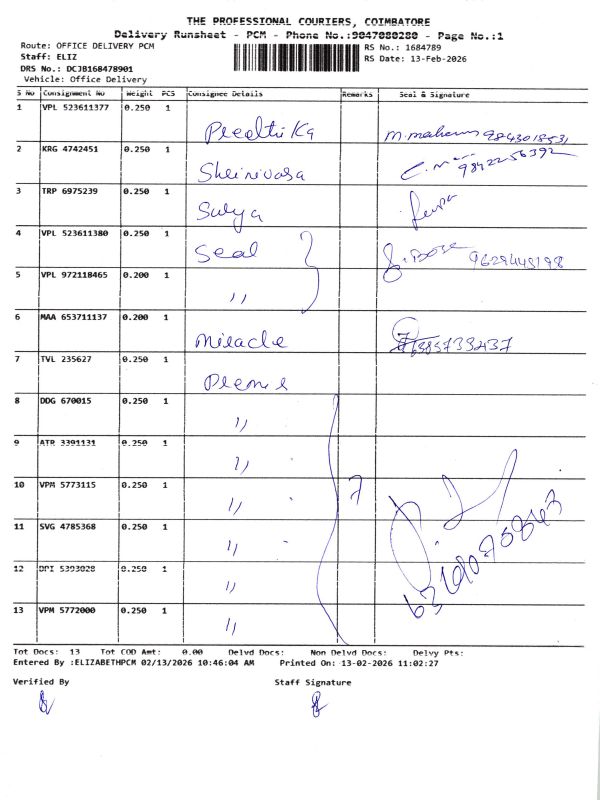 THE PROFESSIONAL COURIERS, COIMBATORE
Delivery Runsheet - PCM - Phone No.:9047080280 - Page No.:1
Route: OFFICE DELIVERY PCM
Staff: ELIZ
DRS No.: DCJB168478901
Vehicle: Office Delivery
RS No.: 1684789
RS Date: 13-Feb-2026
S No Consignment No Weight PCS Consignee Details Remarks Seal & Signature
1 VPL 523611377 0.250 1 Preethika 9843018531
2 KRG 4742451 0.250 1 Shrinivasa 9842256392
3 TRP 6975239 0.250 1 Surya
4 VPL 523611380 0.250 1 Seal 9629445198
5 VPL 972118465 0.200 1 "
6 MAA 653711137 0.200 1 Miracle
7 TVL 235627 0.250 1
8 DDG 670015 0.250 1 "
9 ATR 3391131 0.250 1 "
10 VPM 5773115 0.250 1 " 7
11 SVG 4785368 0.250 1 "
12 DPI 5393028 0.250 1 "
13 VPM 5772000 0.250 1 "
Tot Docs: 13 Tot COD Amt: 0.00 Delvd Docs: Non Delvd Docs: Delvy Pts:
Entered By :ELIZABETHPCM 02/13/2026 10:46:04 AM Printed On: 13-02-2026 11:02:27
Verified By Staff Signature